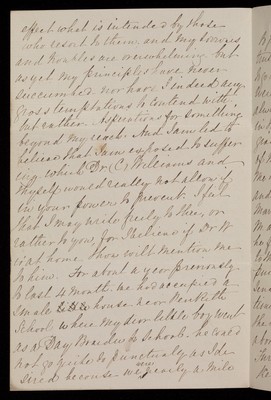 effect what is intended by those
who resort to them, and my sorrows
and troubles are overwhelming but
as yet my principles have never
succumbed nor have I indeed any
gross temptations to contend with
but rather aspirations for something
beyond my reach. And I am led to
believe that I am exposed to suffer
ing which Dr (C) Williams and
thyself would really not allow if
in your powers to prevent. I felt
that I may write freely to thee, or
rather to you, for I believe if Dr W
is at home thou wilt mention me
to him. For about a year previously
to last 4 month we had occupied a
small house near Penketh
School where my dear little boy went
as a Day Boarder School. he could
not go quite so punctually as I de
sired because we were nearly a mile